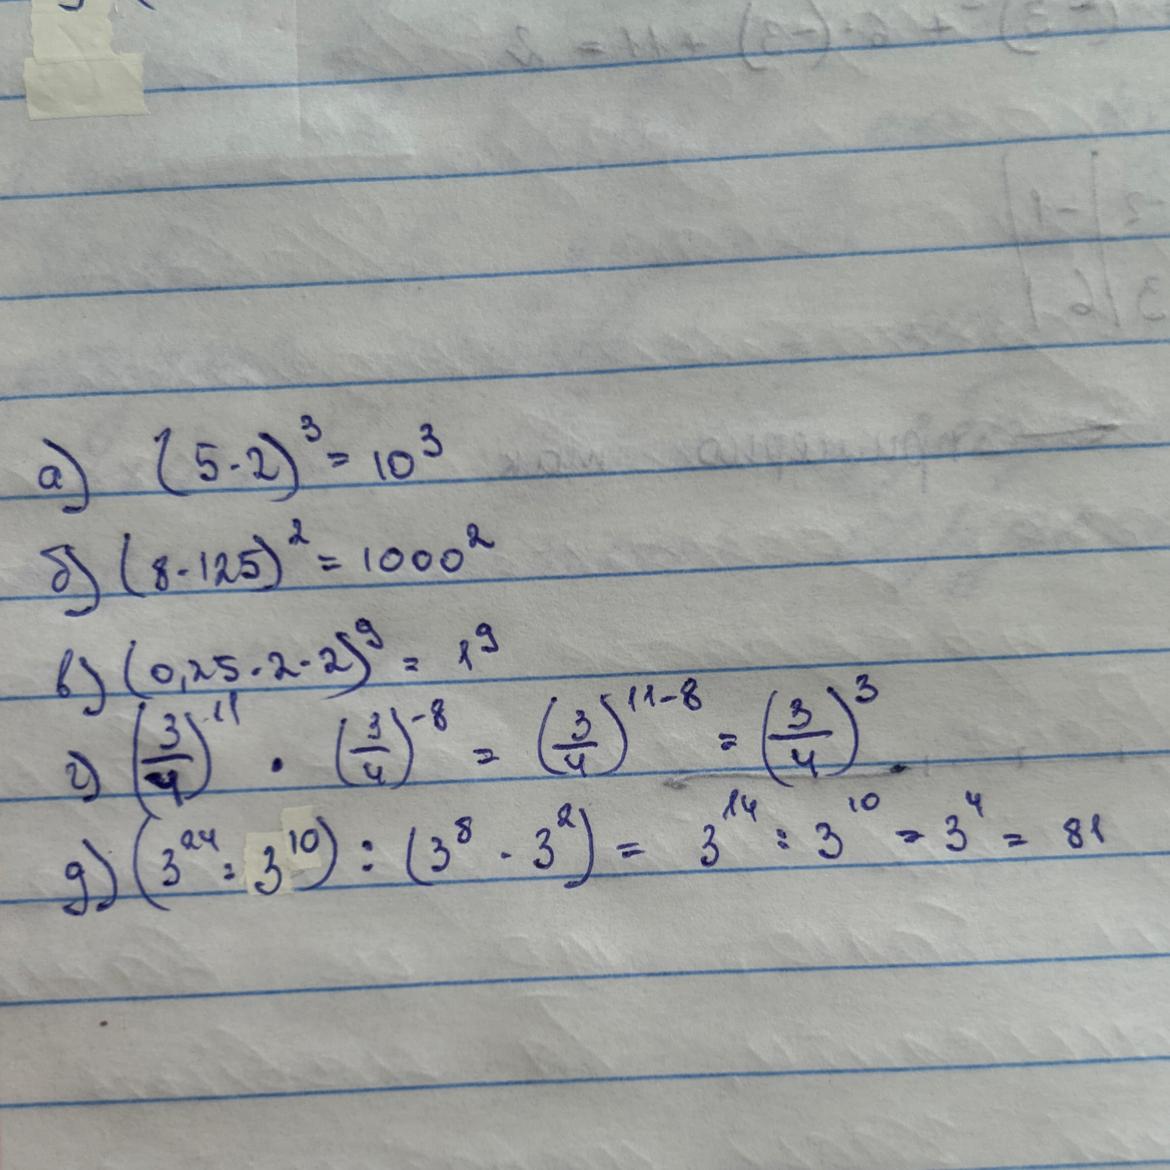 а) (5·2)³ = 10³
б) (8·125)² = 1000²
в) (0,25·2·2)⁹ = 1⁹
г) (3/4)¹¹ · (3/4)⁻⁸ = (3/4)¹¹⁻⁸ = (3/4)³
д) (3²⁴ : 3¹⁰) : (3⁸ · 3²) = 3¹⁴ : 3¹⁰ = 3⁴ = 81